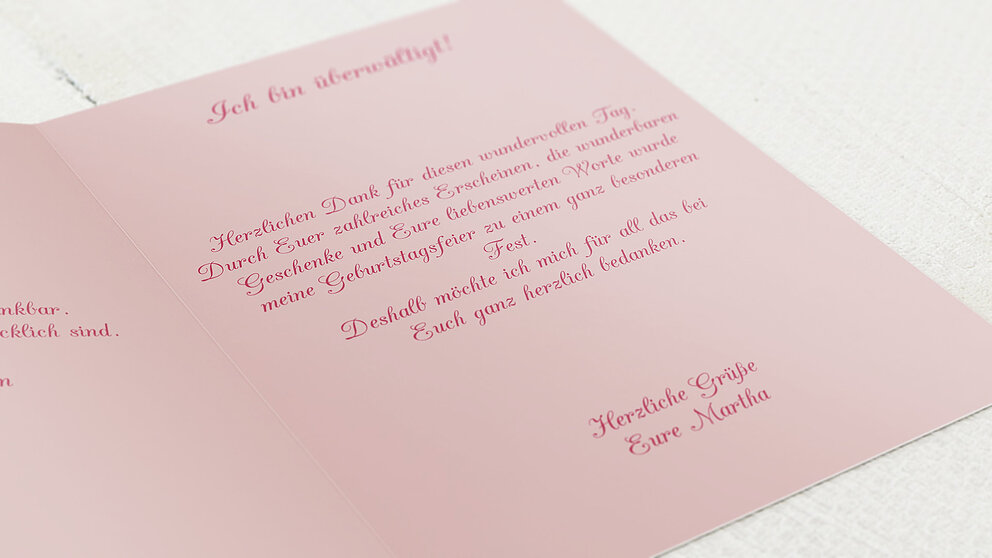 Ich bin überwältigt!
Herzlichen Dank für diesen wundervollen Tag.
Durch Euer zahlreiches Erscheinen, die wunderbaren
Geschenke und Eure liebenswerten Worte wurde
meine Geburtstagsfeier zu einem ganz besonderen
Fest.
Deshalb möchte ich mich für all das bei
Euch ganz herzlich bedanken.
Herzliche Grüße
Eure Martha
sind.